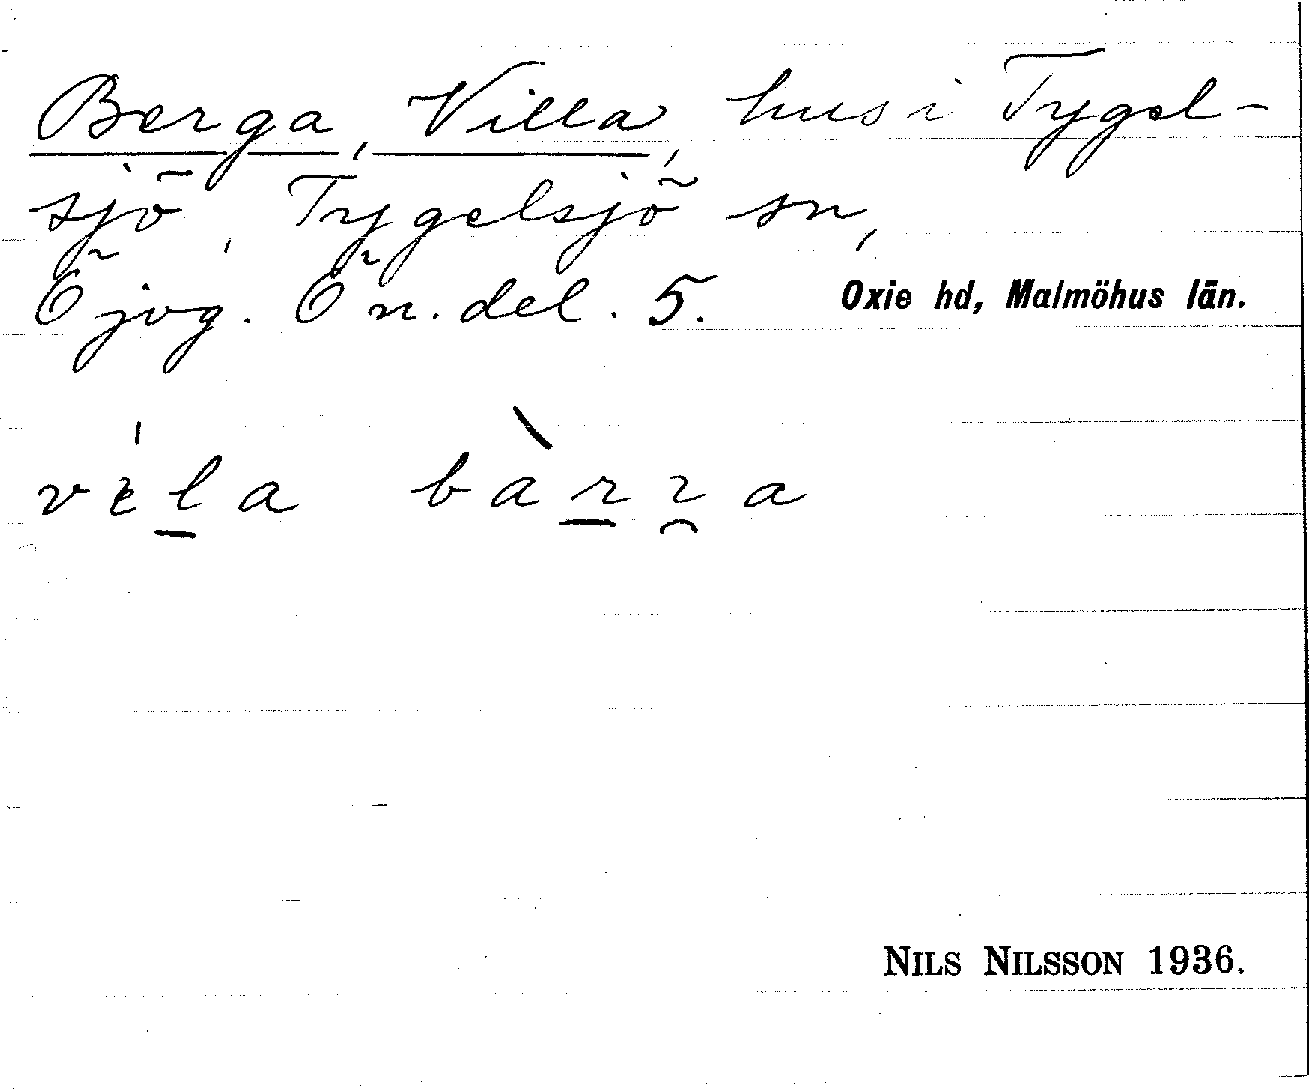 Berga, Villa, hus i Tygel-
sjö, Tygelsjö sn,
Öjog. Ön. del. 5. Oxie hd, Malmöhus län.
vila barra
NILS NILSSON 1936.